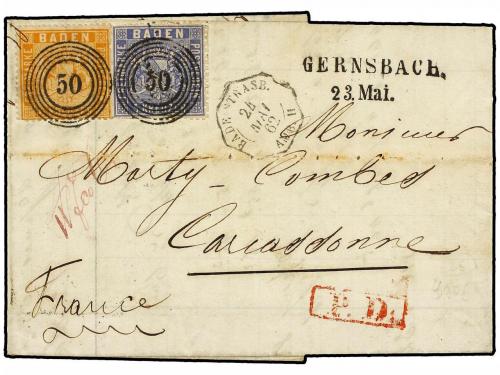 BADEN
BADEN
50
50
BADE STRASB.
24
MAI
62
GERNSBACH.
23. Mai.
Monsieur
Marty-Combes
Carcassonne
France
P.D.